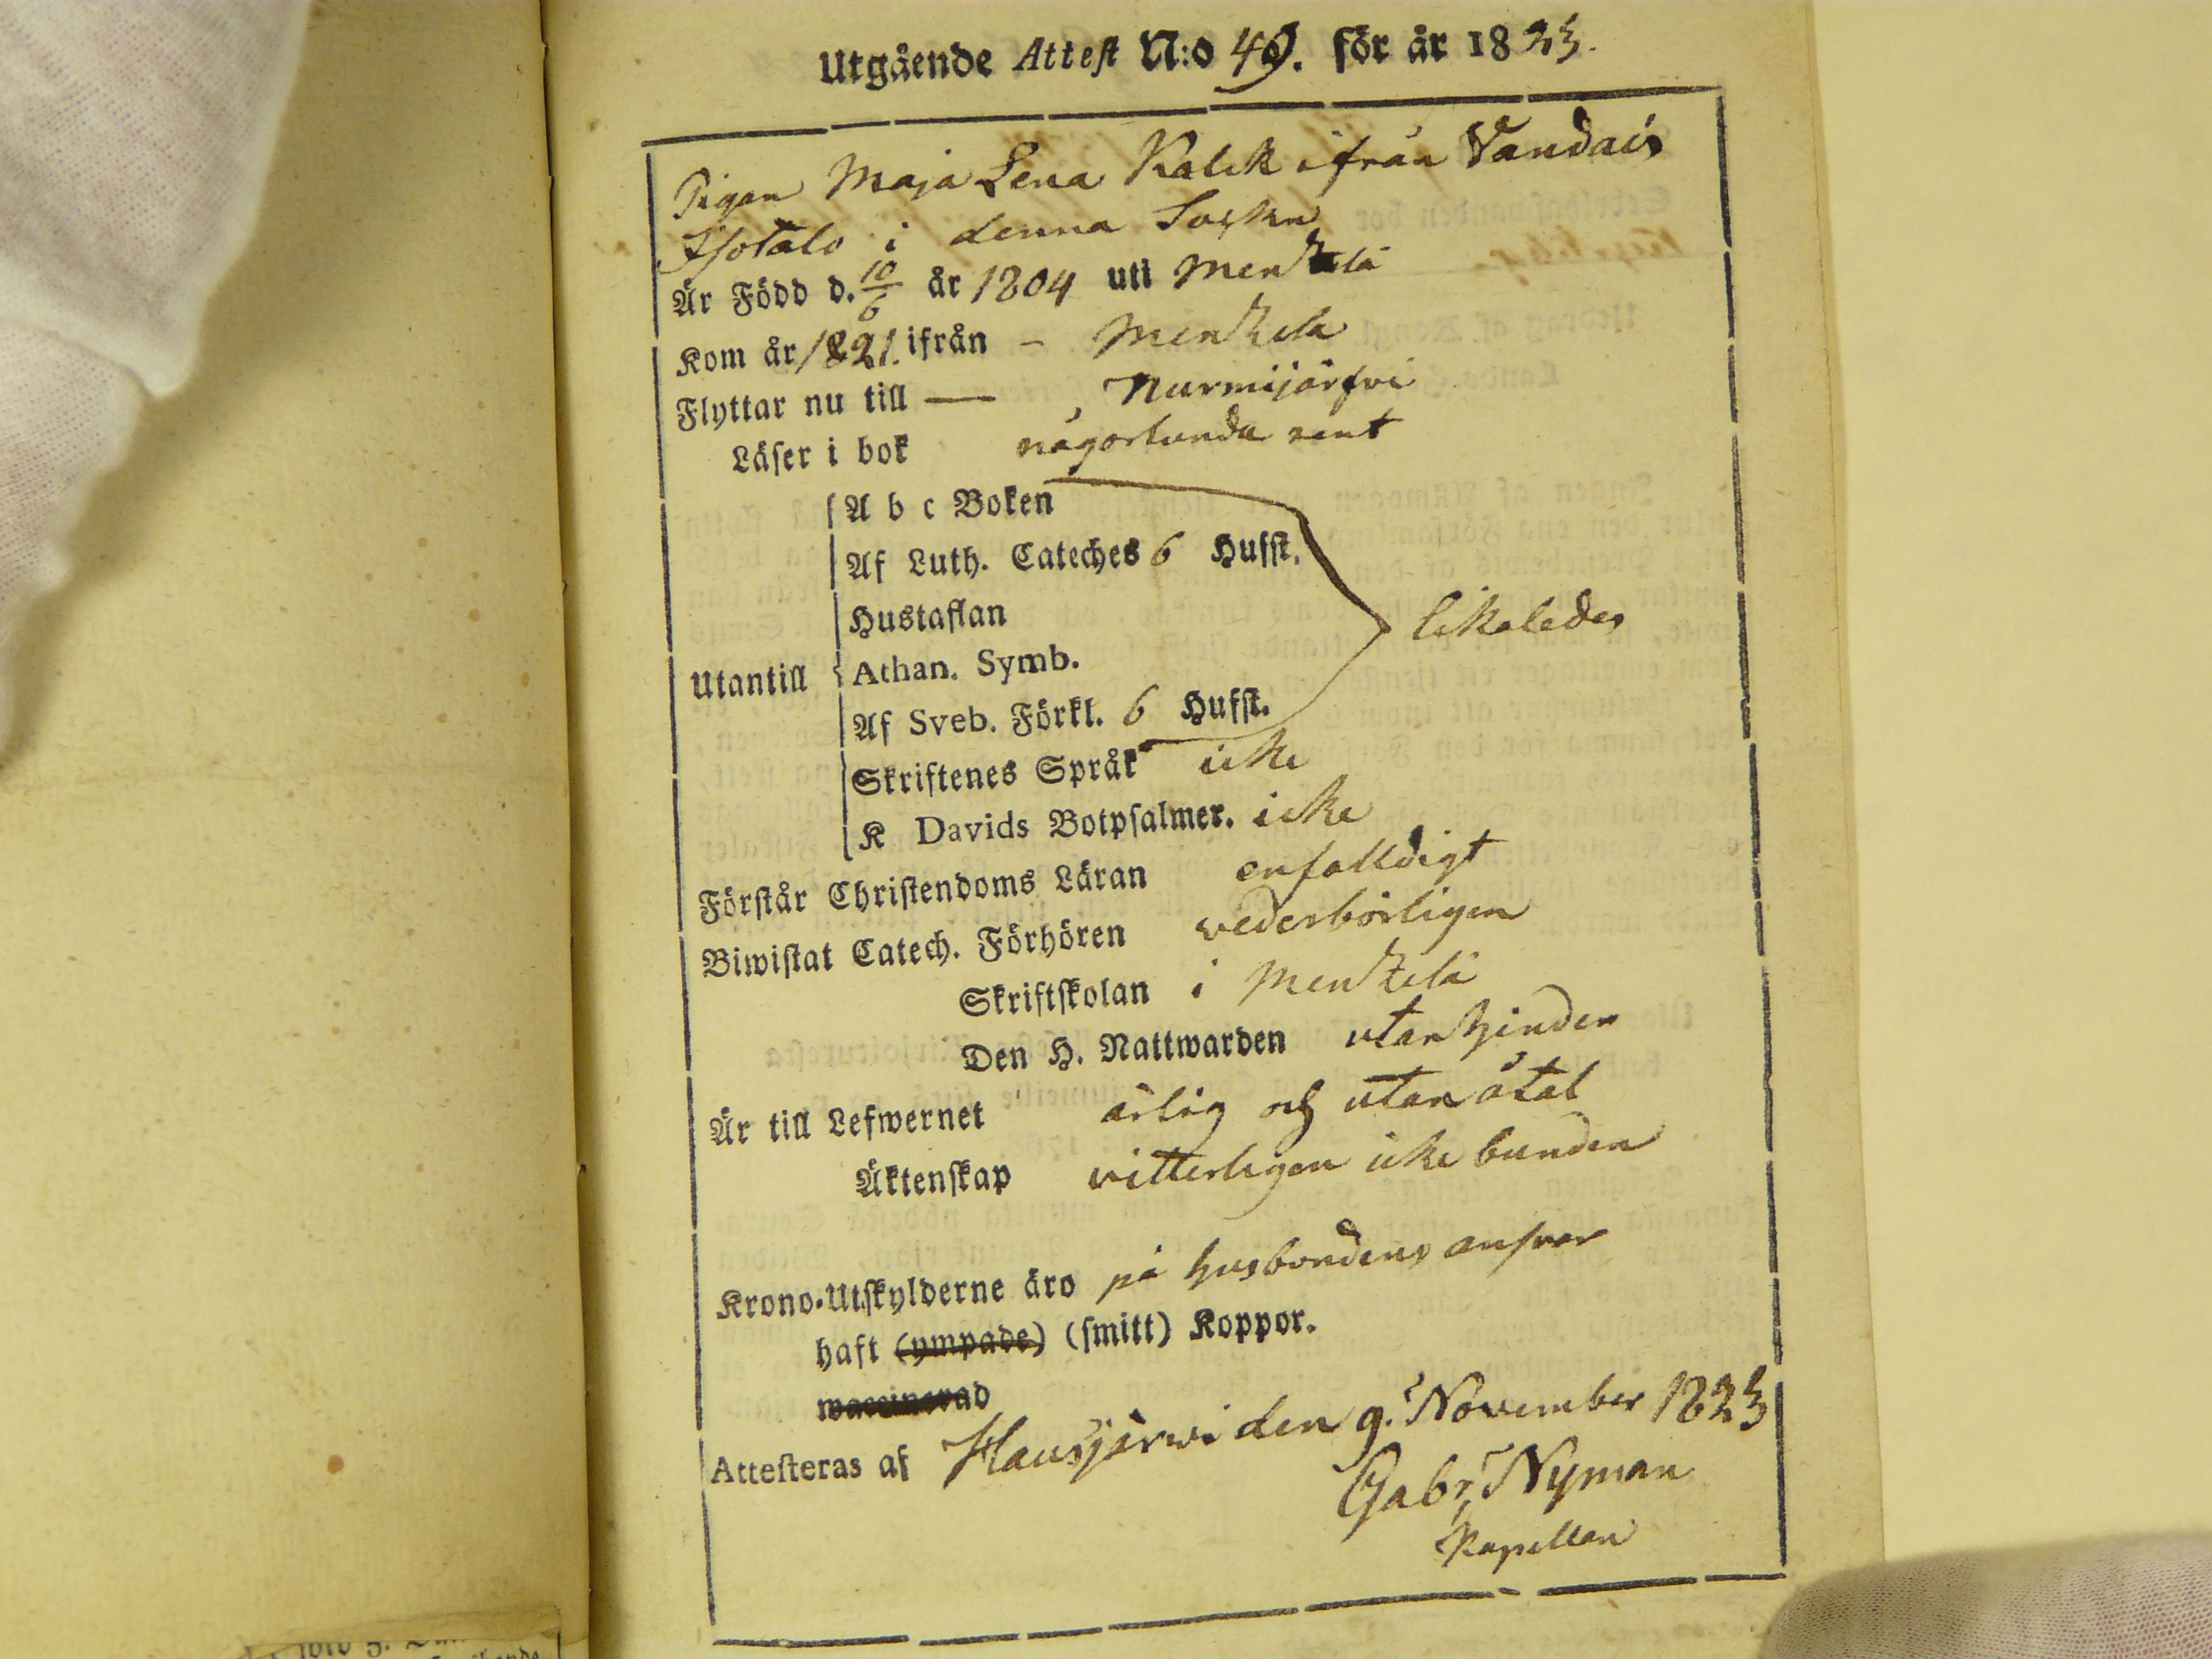 Utgående Attest N:o 49. för år 1823.
Pigan Maja Lena Kalek ifrån Vandais
Isotalo i denna Sockn
Är Född d. 10/6 år 1804 uti Mentzelä
Kom år 1821. ifrån - Mentzelä
Flyttar nu till — Nurmijärfvi
Läser i bok någorlunda rent
A b c Boken
Af Luth. Cateches 6 Hufst.
Hustaflan
likaledes
Utantill Athan. Symb.
Af Sveb. Förkl. 6 Hufst.
Skriftenes Språk icke
K Davids Botpsalmer. icke
Förstår Christendoms Läran enfalldigt
Biwistat Catech. Förhören vederbörligen
Skriftskolan i Mentzelä
Den H. Nattwarden utan hinder
Är till Lefwernet ärlig och utan åtal
Äktenskap vitterligen icke bunden
Krono-Utskylderne äro på husbondens ansvar
haft (ympade) (smitt) Koppor.
waccinerad
Attesteras af Hausjärwi den 9. November 1823
Gabr. Nyman
Kapellan